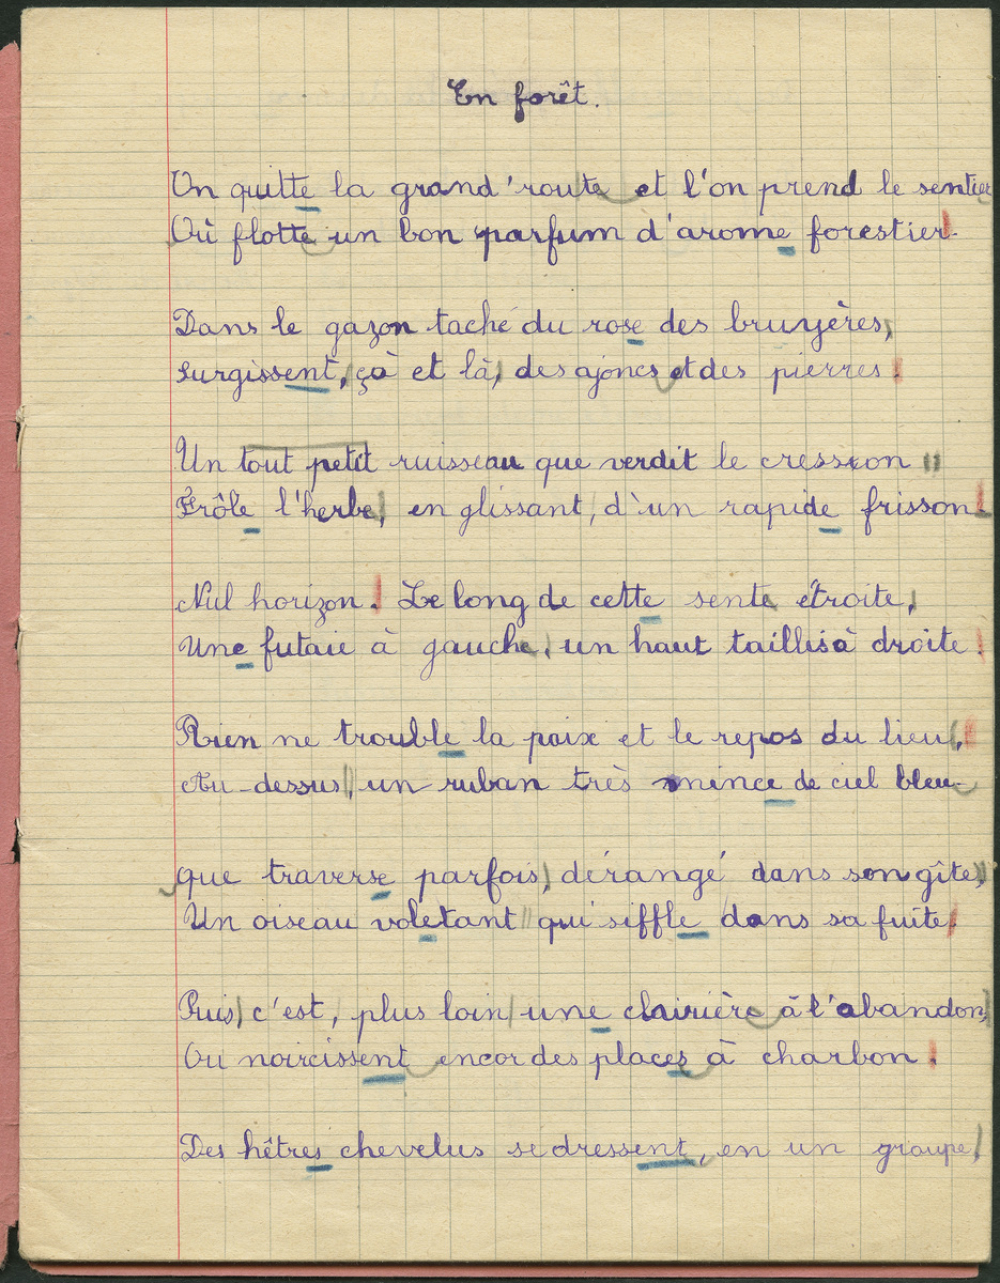 En forêt.
On quitte la grand'route et l'on prend le sentier
Où flotte un bon parfum d'arome forestier.
Dans le gazon taché du rose des bruyères,
Surgissent, çà et là, des ajoncs et des pierres.
Un tout petit ruisseau que verdit le cresson
Frôle l'herbe, en glissant, d'un rapide frisson.
Nul horizon. Le long de cette sente étroite,
Une futaie à gauche, un haut taillis à droite.
Rien ne trouble la paix et le repos du lieu,
Au-dessus, un ruban très mince de ciel bleu
que traverse parfois, dérangé dans son gîte,
Un oiseau voletant qui siffle dans sa fuite,
Puis, c'est, plus loin une clairière à l'abandon,
Ou noircissent encor des places à charbon.
Des hêtres chevelus se dressent, en un groupe,